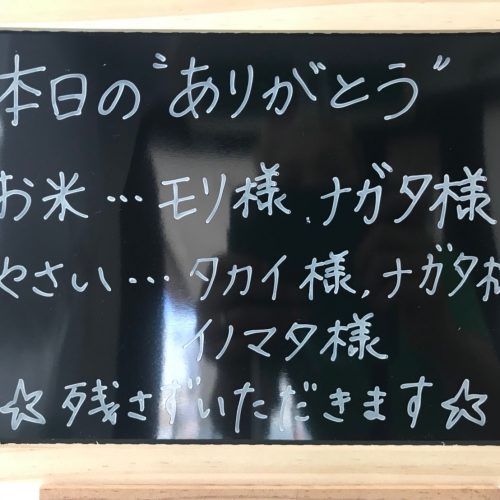 本日の“ありがとう”
お米…モリ様、ナガタ様
やさい…タカイ様、ナガタ様
イノマタ様
☆残さずいただきます☆